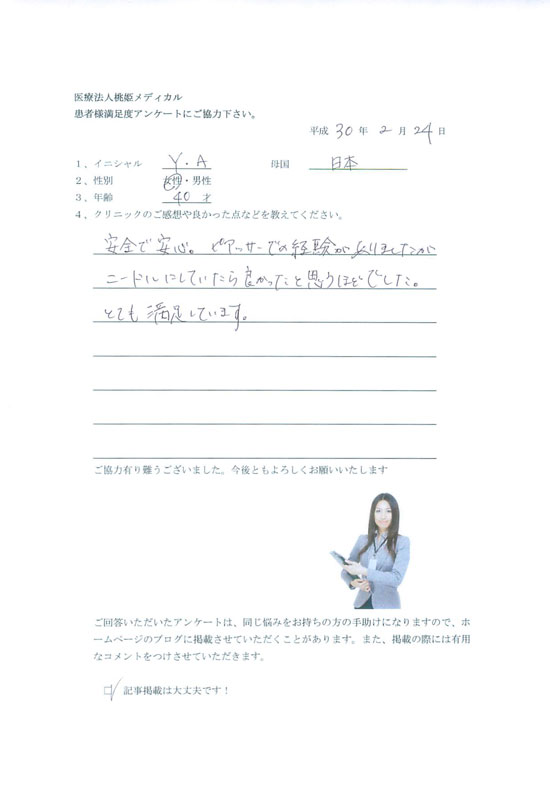 医療法人桃姫メディカル
患者様満足度アンケートにご協力下さい。
平成 30 年 2 月 24 日
1、イニシャル Y.A 母国 日本
2、性別 女性・男性
3、年齢 40 才
4、クリニックのご感想や良かった点などを教えてください。
安全で安心。ピアッサーでの経験がありましたが
ニードルにしていたら良かったと思うほどでした。
とても満足しています。
ご協力有り難うございました。今後ともよろしくお願いいたします
ご回答いただいたアンケートは、同じ悩みをお持ちの方の手助けになりますので、ホ
ームページのブログに掲載させていただくことがあります。また、掲載の際には有用
なコメントをつけさせていただきます。
記事掲載は大丈夫です！